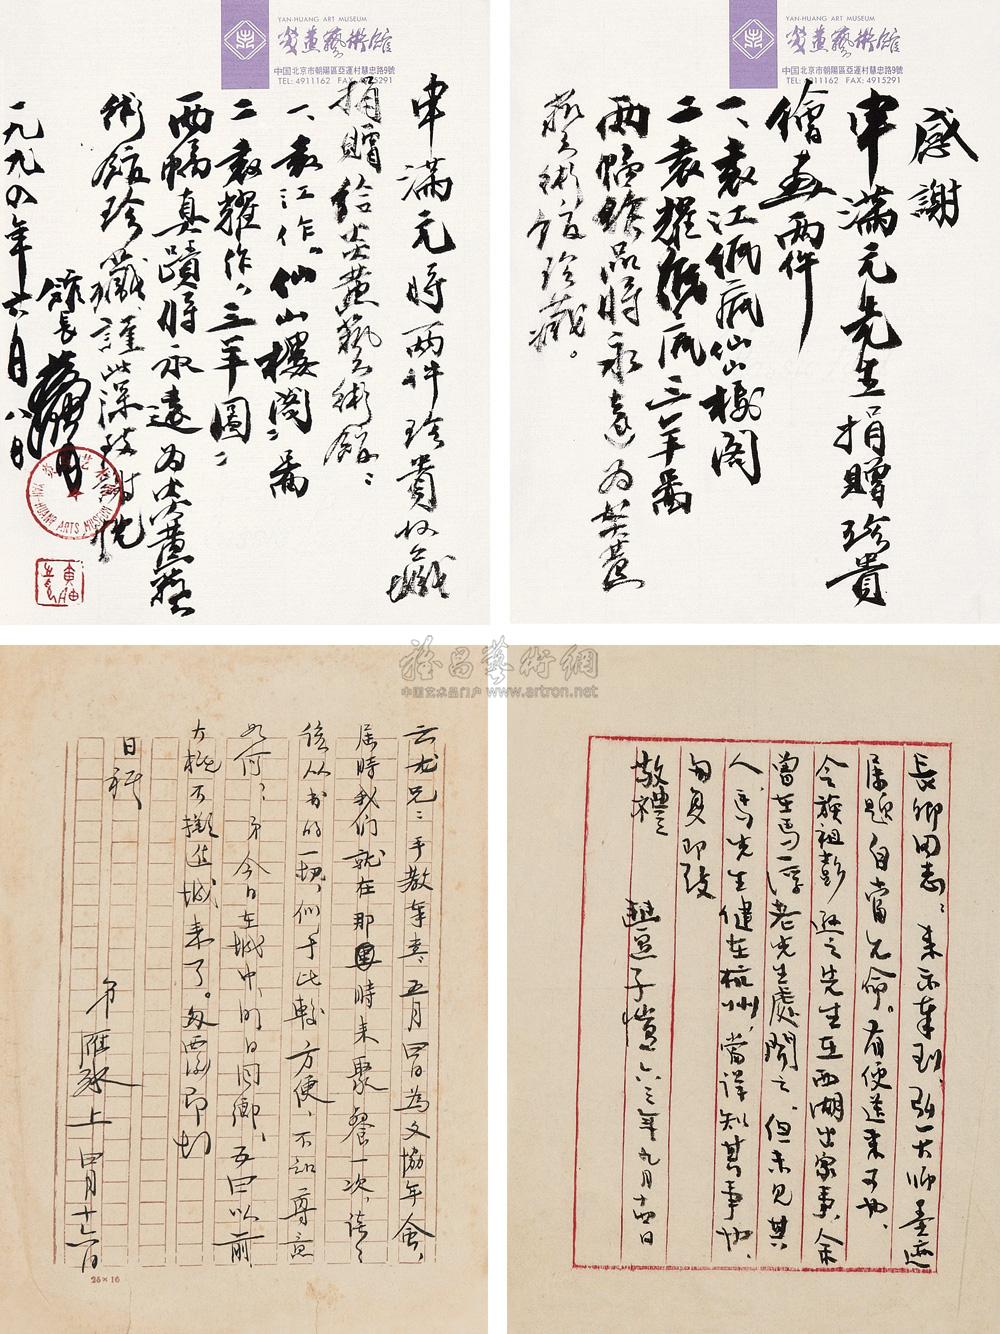 YAN-HUANG ART MUSEUM
炎黄藝術館
中国北京市朝陽區亞運村慧忠路9號
TEL: 4911162 FAX: 4915291
申滿元將兩件珍貴收藏
捐贈給炎黃藝術館：
一、袁江作。仙山樓閣圖
二袁耀作，三羊圖
兩幅真蹟將永遠为炎黃藝
術館珍藏謹此深致謝忱
館長
一九九四年六月八日
YAN-HUANG ARTS MUSEUM
YAN-HUANG ART MUSEUM
炎黄藝術館
中国北京市朝陽區亞運村慧忠路9號
TEL: 4911162 FAX: 4915291
感謝
申滿元先生捐贈珍貴
繪畫兩件
一、袁江紙底仙山樓阁
二袁耀紙底三羊圖
兩幅作品將永遠为炎黃
藝術館珍藏。
雅昌藝術網
中国艺术品门户 www.artron.net
云龙兄：手教奉悉、五月四日為文協年会，
屆時我們就在那里時来聚餐一次，談談
後从书的一切，似乎比較方便，不知尊意
如何；弟今日在城中，明日回鄉，五日以前
大概不擬進城来了。匆匆即頌
日祺
弟雁冰上四月十六日
26×16
長卿同志：来示奉到，弘一大師墨迹
屬題自當允命。有便送来可也、
令族祖彭遜之先生在西湖出家事，余
曾在馬一浮老先生處聞之，但未見其
人，馬先生健在杭州，當详知其事也，
匆复即致
敬禮
豐子愷 六三年九月十四日